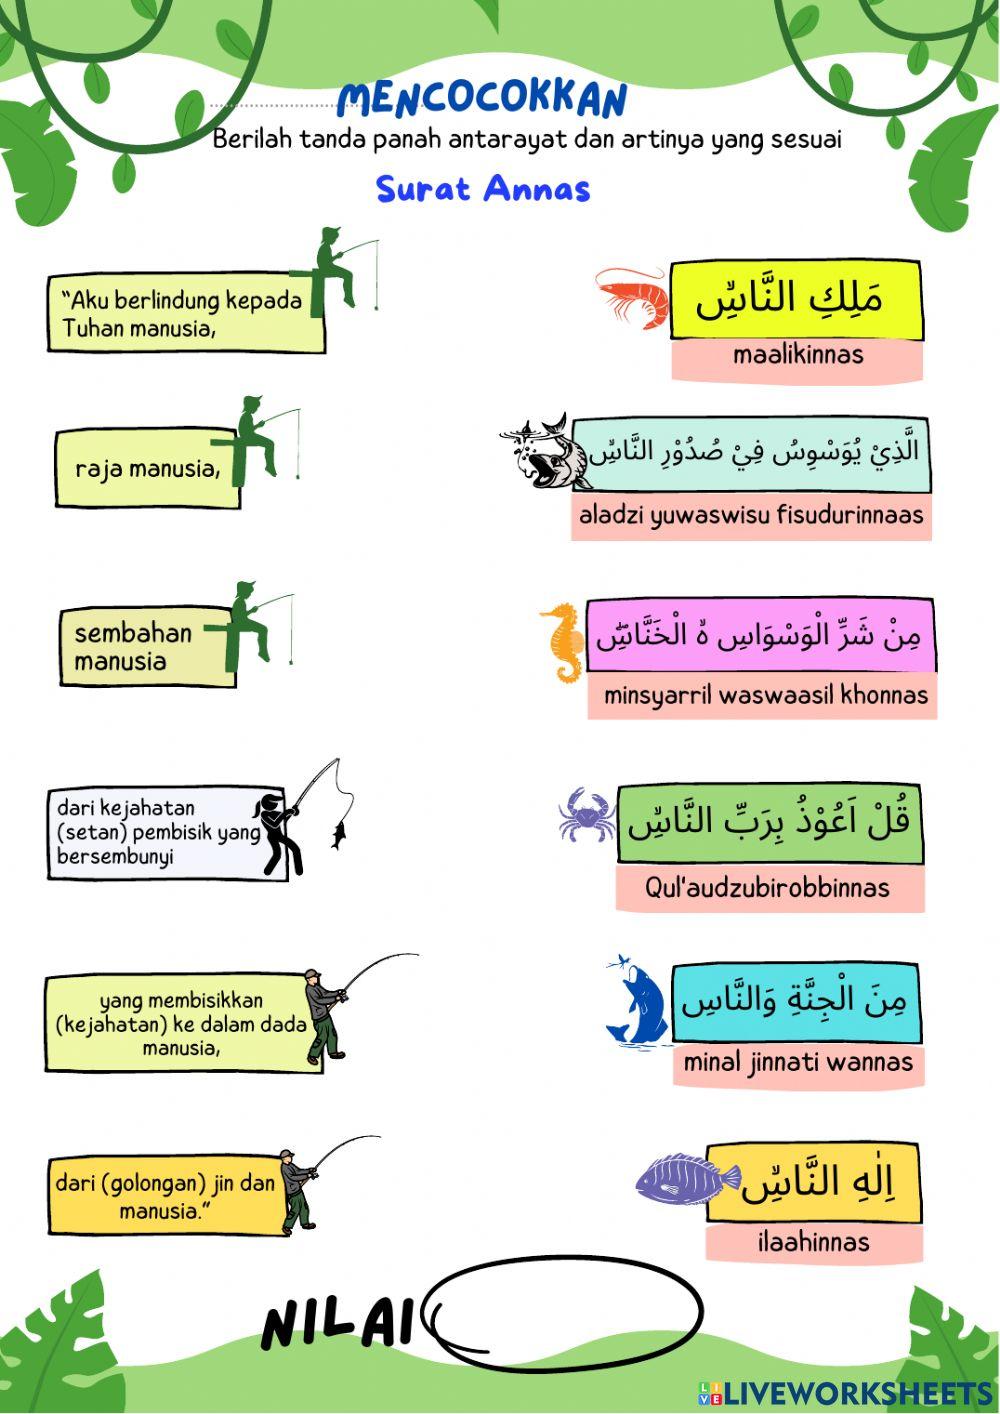 MENCOCOKKAN
Berilah tanda panah antarayat dan artinya yang sesuai
Surat Annas
“Aku berlindung kepada
Tuhan manusia,
مَلِكِ النَّاسِۙ
maalikinnas
raja manusia,
الَّذِيْ يُوَسْوِسُ فِيْ صُدُوْرِ النَّاسِۙ
aladzi yuwaswisu fisudurinnaas
sembahan
manusia
مِنْ شَرِّ الْوَسْوَاسِ ەۙ الْخَنَّاسِۖ
minsyarril waswaasil khonnas
dari kejahatan
(setan) pembisik yang
bersembunyi
قُلْ اَعُوْذُ بِرَبِّ النَّاسِۙ
Qul'audzubirobbinnas
yang membisikkan
(kejahatan) ke dalam dada
manusia,
مِنَ الْجِنَّةِ وَالنَّاسِ
minal jinnati wannas
dari (golongan) jin dan
manusia.”
اِلٰهِ النَّاسِۙ
ilaahinnas
NILAI
LIVE LIVEWORKSHEETS